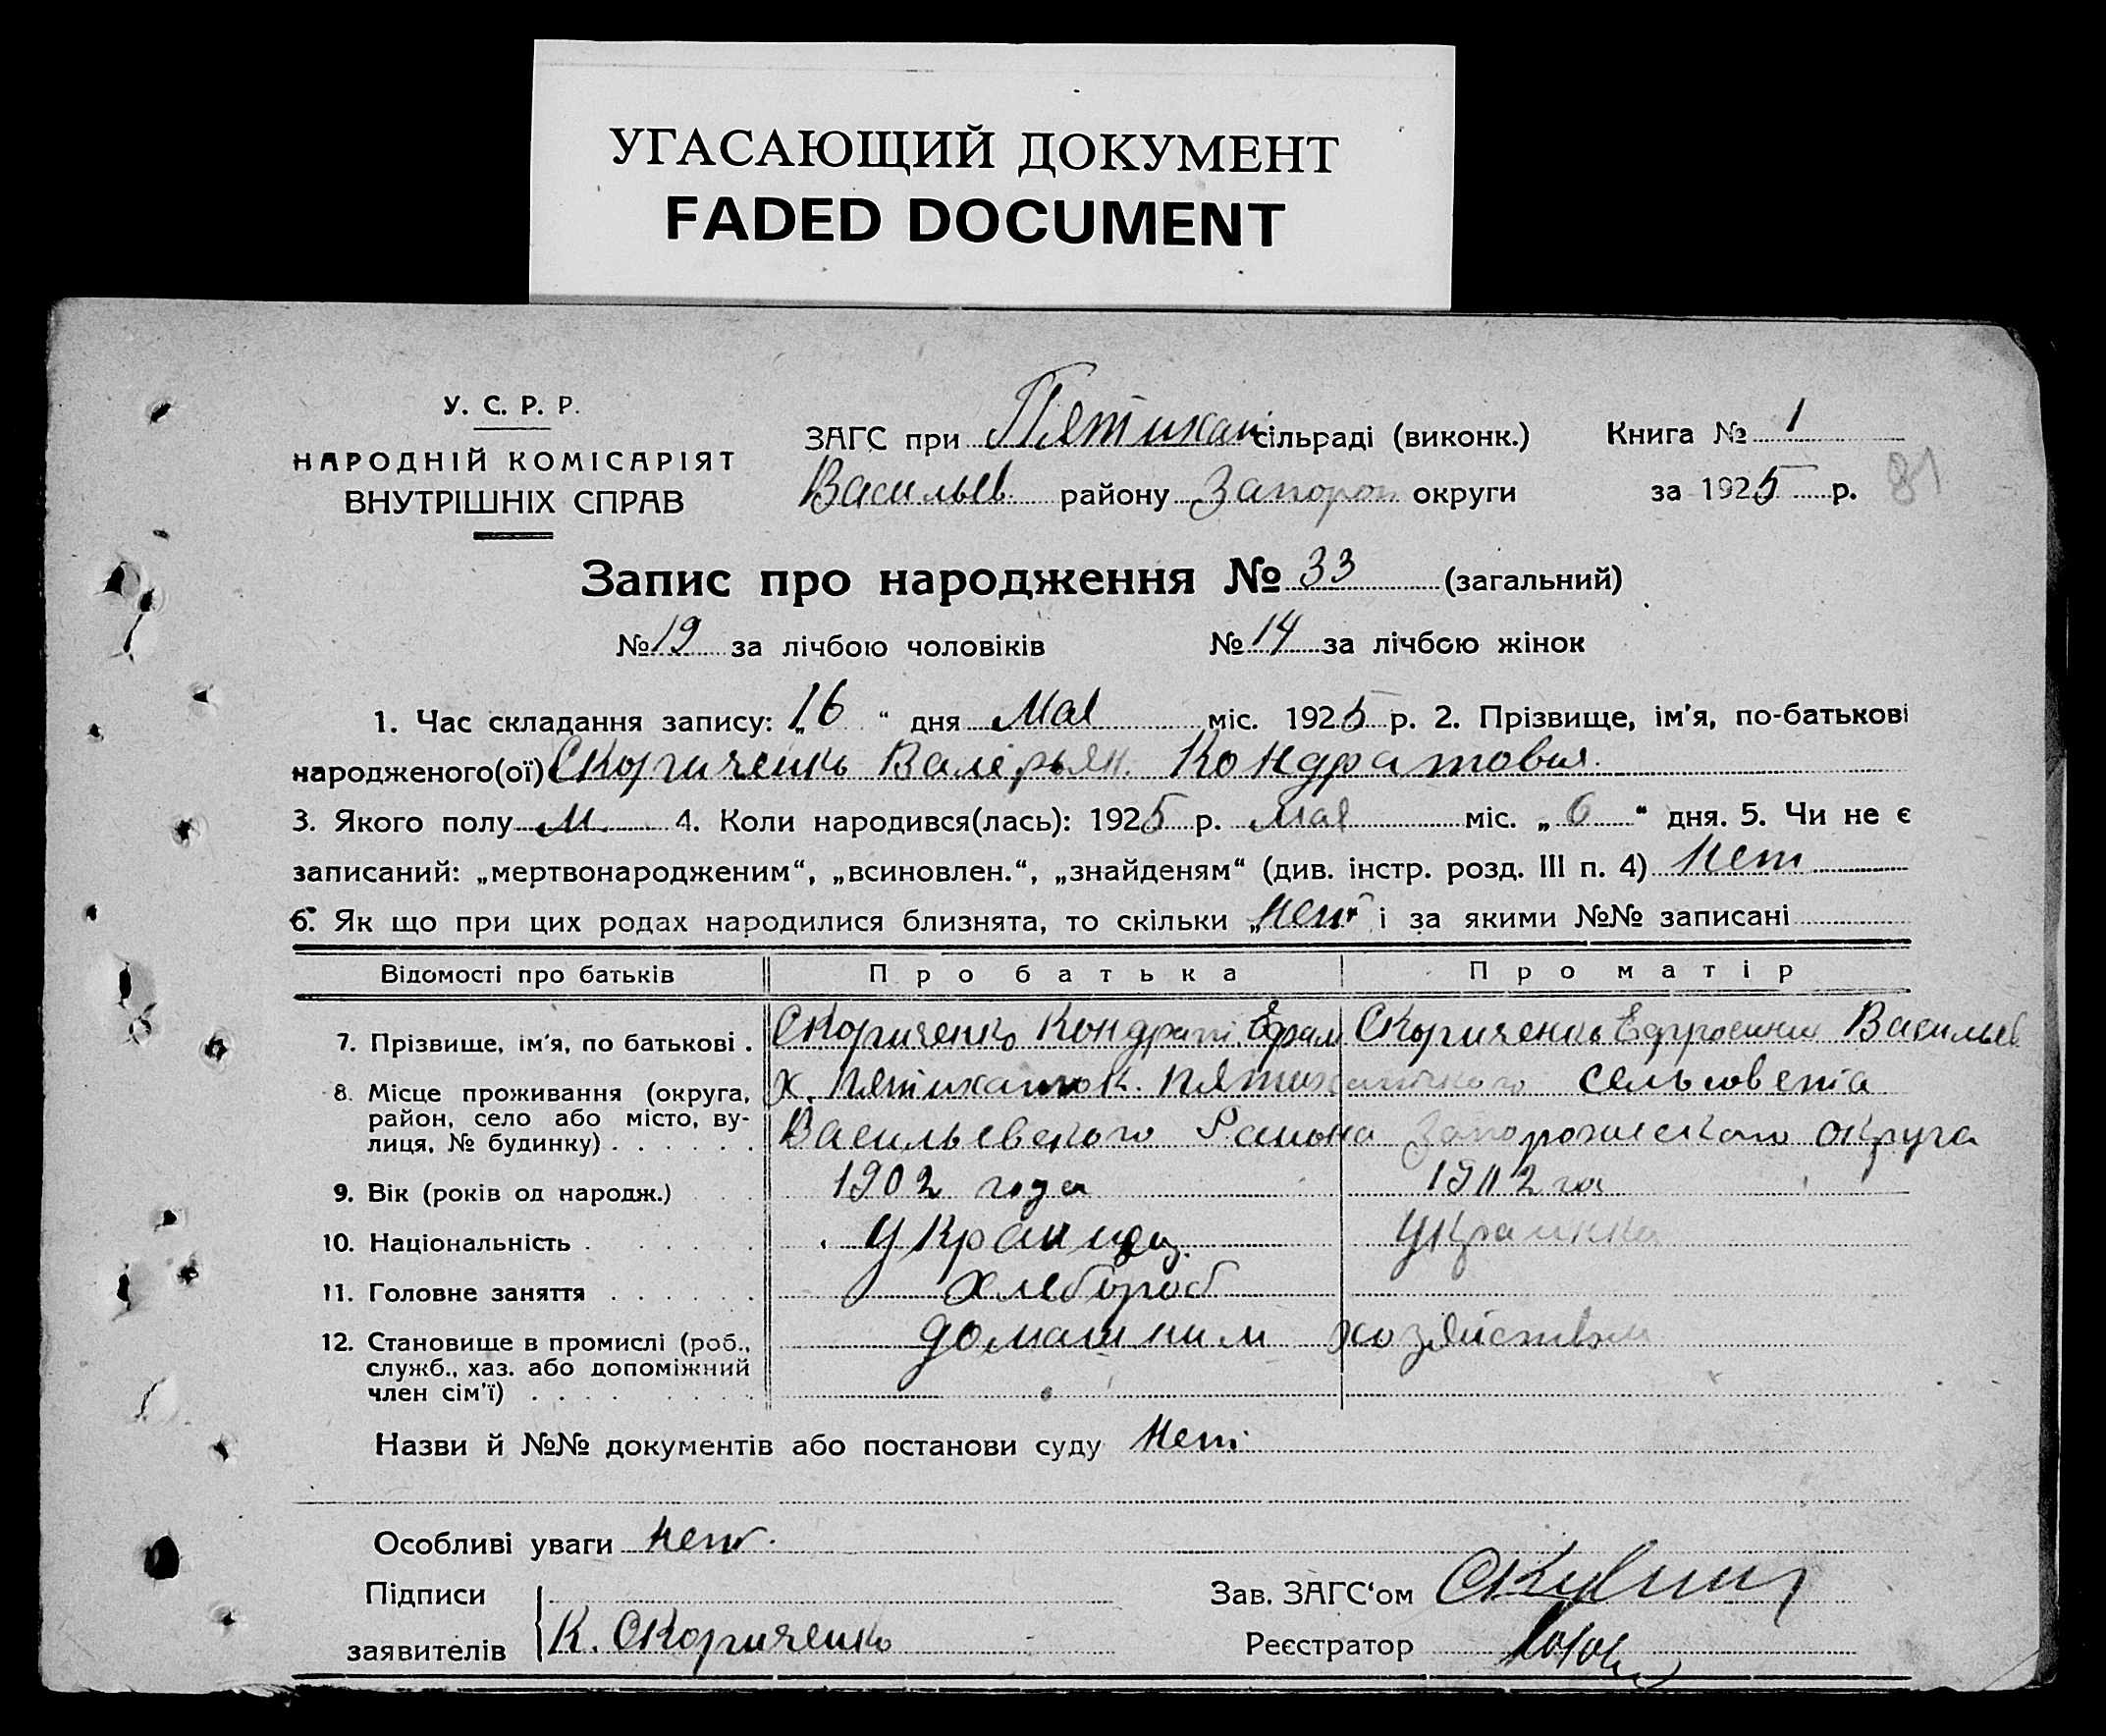 УГАСАЮЩИЙ ДОКУМЕНТ
FADED DOCUMENT
У. С. Р. Р.
НАРОДНІЙ КОМІСАРІЯТ
ВНУТРІШНІХ СПРАВ
ЗАГС при Пятихат сільраді (виконк.)
Васильев. району Запорож округи
Книга № 1
за 1925 р.
81
Запис про народження № 33 (загальний)
№ 19 за лічбою чоловіків № 14 за лічбою жінок
1. Час складання запису: „16“ дня Мая міс. 1925 р. 2. Прізвище, ім'я, по-батькові
народженого(ої) Скориченко Валерьян. Кондратовия.
3. Якого полу м. 4. Коли народився(лась): 1925 р. мая міс. „6“ дня. 5. Чи не є
записаний: „мертвонародженим“, „всиновлен.“, „знайденям“ (див. інстр. розд. III п. 4) нет
6. Як що при цих родах народилися близнята, то скільки „нет“ і за якими №№ записані
Відомості про батьків Про батька Про матір
7. Прізвище, ім'я, по батькові . Скориченко Кондрат. Ефрам Скориченко Ефросиния Васильев
8. Місце проживання (округа, район, село або місто, вулиця, № будинку) . . . . . . х. Пятихаток. Пятихатского сельсовета
Васильевского Района Запорожского округа
9. Вік (років од народж.) 1902 года 1902 го
10. Національність . . . . . Украинец. Украинка
11. Головне заняття . . . . . . хлебороб
12. Становище в промислі (роб., служб., хаз. або допоміжний член сім'ї) . . . . . . домашним хозяйством
Назви й №№ документів або постанови суду нет
Особливі уваги нет.
Підписи
заявителів К. Скориченко
Зав. ЗАГС'ом
Реєстратор